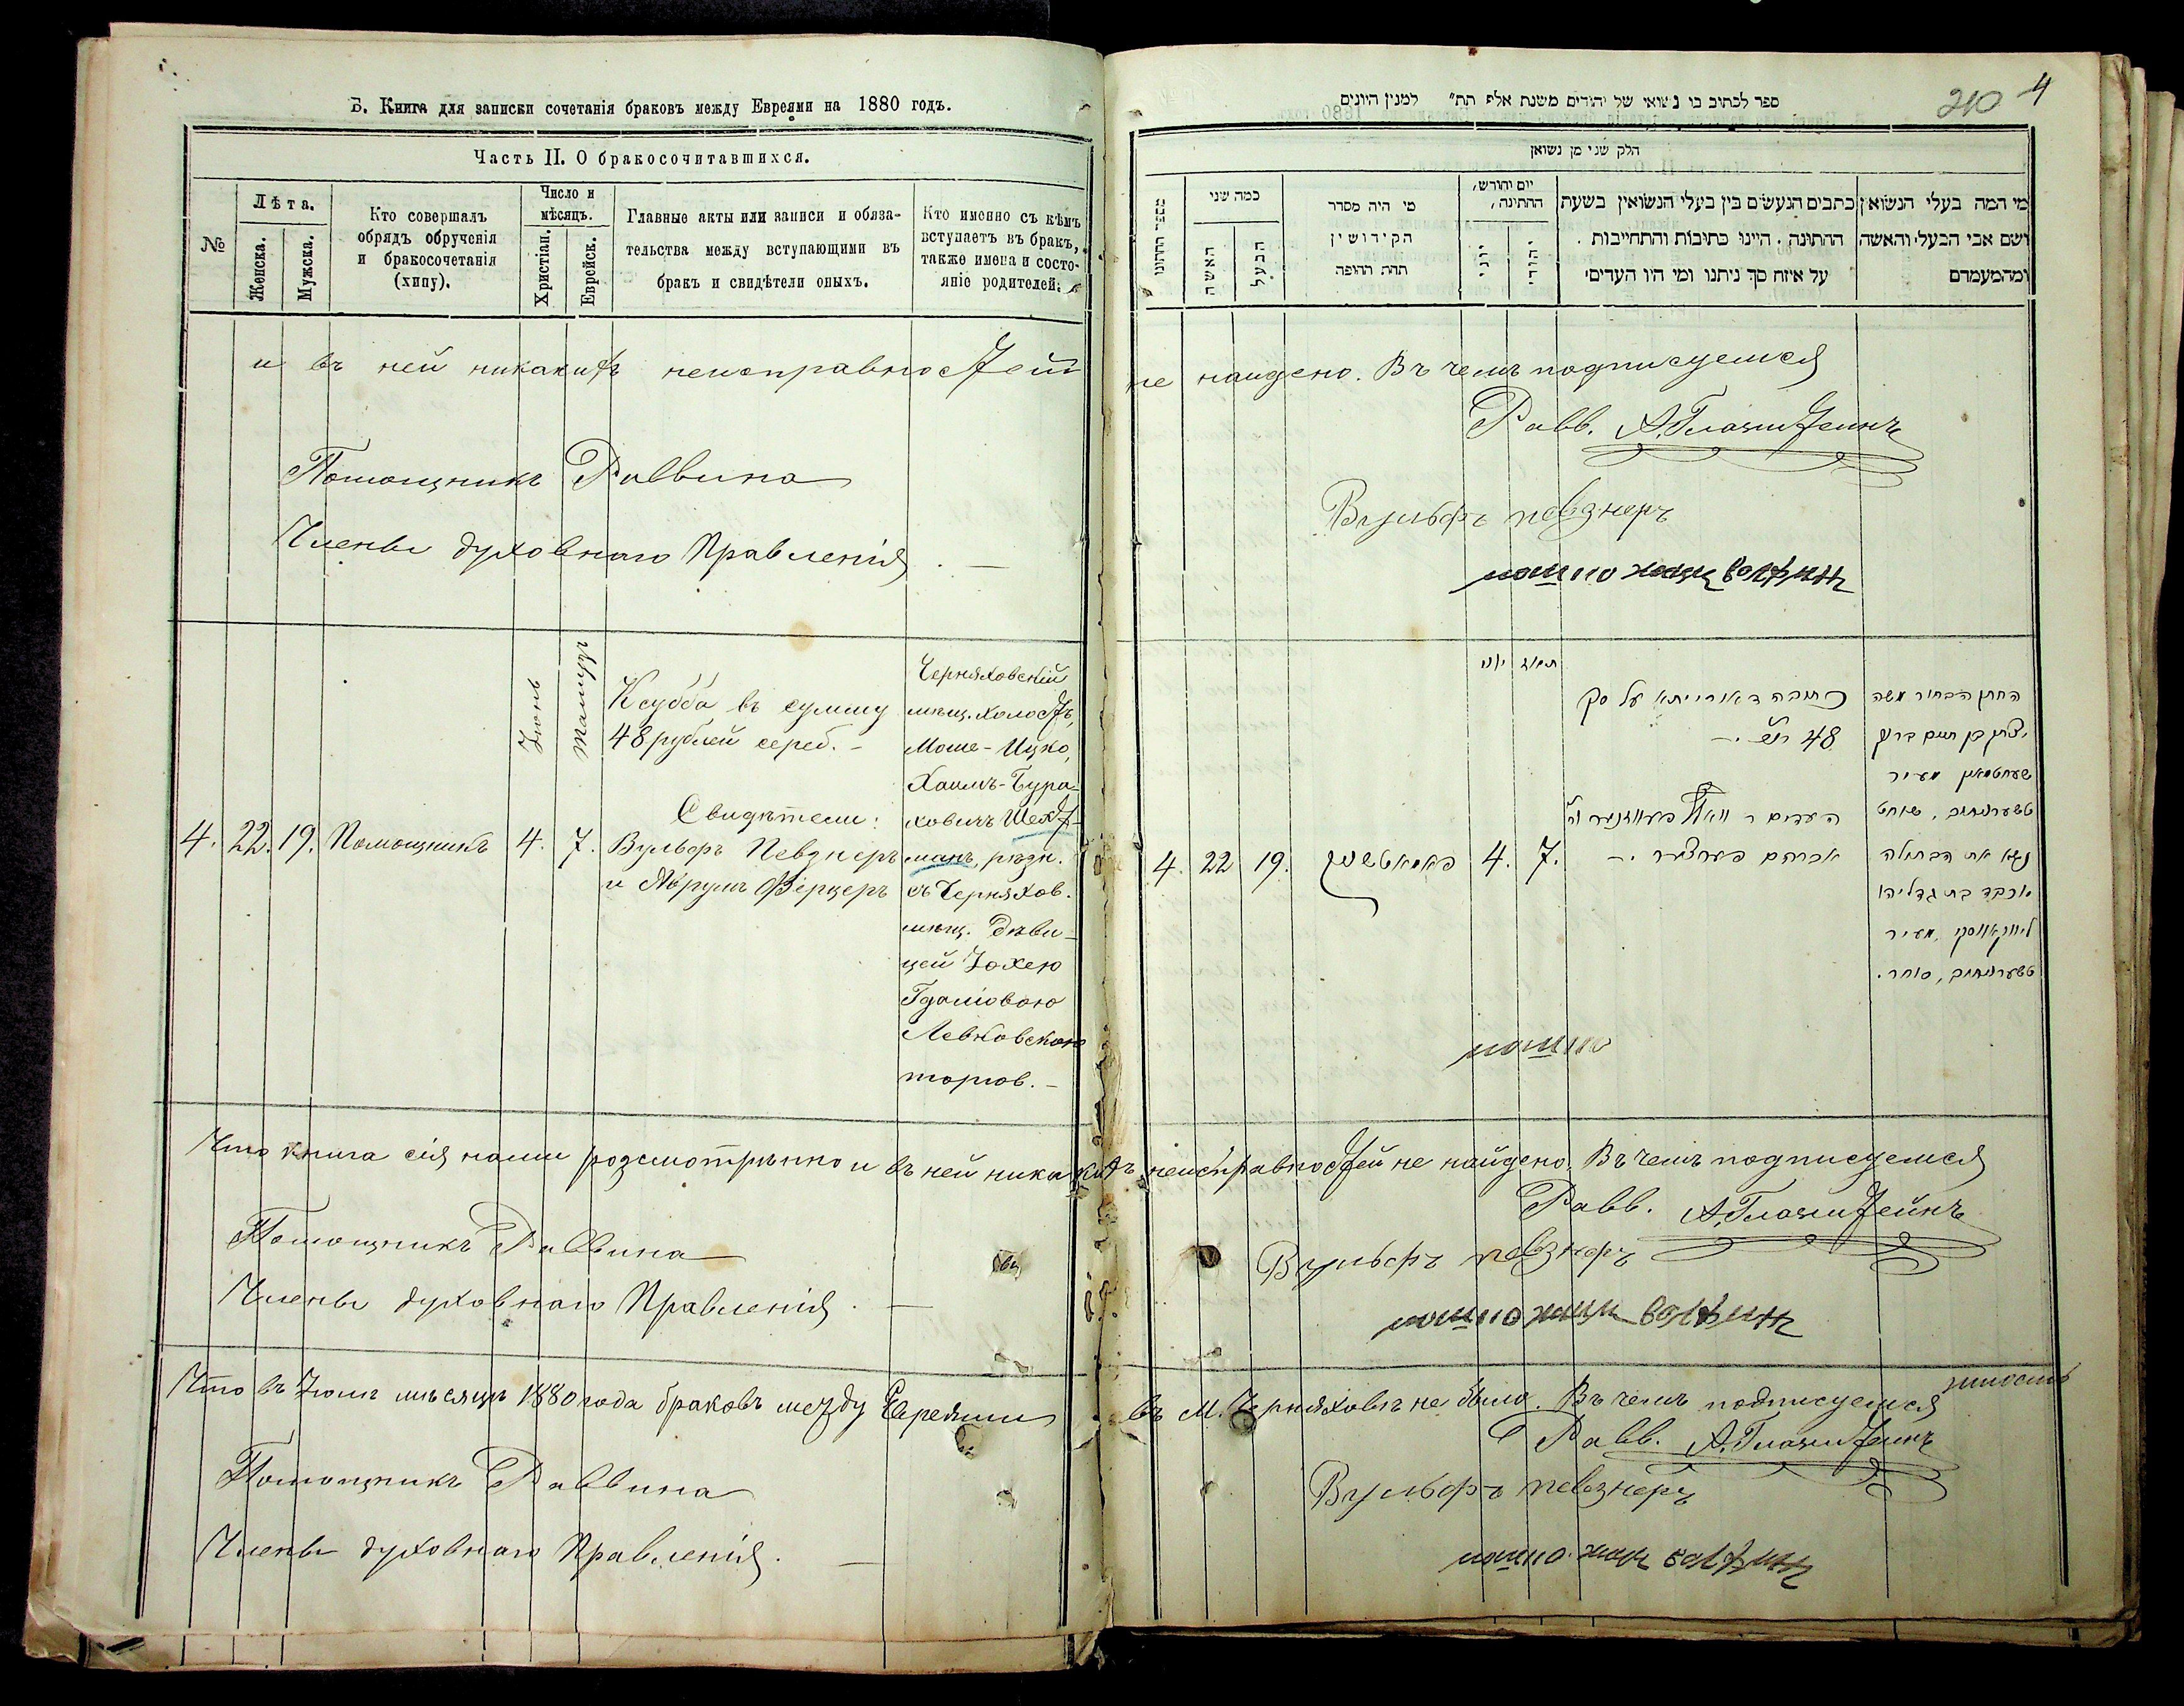 Б. Книга для записки сочетанія браковъ между Евреями на 1880 годъ.
Часть II. О бракосочитавшихся.
№
Лѣта.
Женска.
Мужска.
Кто совершалъ
обрядъ обрученія
и бракосочетанія
(хипу).
Число и
мѣсяцъ.
Христіан.
Еврейск.
Главные акты или записи и обяза-
тельства между вступающими въ
бракъ и свидѣтели оныхъ.
Кто именно съ кѣмъ
вступаетъ въ бракъ,
также имена и состо-
яніе родителей.
и въ ней никакихъ неисправностей
Помощникъ Раввина
Члены духовнаго Правленія. —
Іюнь
Тамузъ
4. 22. 19. Помощникъ 4. 7.
Ксубба въ сумму
48 рублей сереб. —
Свидѣтели:
Вульфъ Певзнеръ
и Абрумъ Ферцеръ
Черняховскій
мѣщ. холостъ,
Моше-Ицко,
Хаимъ-Бура-
ховичъ Шехт-
манъ, рѣзн.
съ Черняхов.
мѣщ. дѣви-
цей Іохею
Гдаліовою
Левковскою
торгов. —
Что книга сія нами розсмотрѣнно и въ ней никакихъ
Помощникъ Раввина
Члены духовнаго Правленія. —
Что въ Іюлѣ мѣсяцѣ 1880 года браковъ между Евреями
Помощникъ Раввина
Члены духовнаго Правленія. —
210 4
ספר לכתוב בו נשואי של יהודים משנת אלף תת" למנין היונים
חלק שני מן נשואן
מי המה בעלי הנשואין
ושם אבי הבעל והאשה
ומהמעמדם
כתבים הנעשים בין בעלי הנשואין בשעת
החתונה. היינו כתובות והתחייבות.
על איזה סך ניתנו ומי היו העדים
יום יחודש,
החתונה,
יהודי
יוני
מי היה מסדר
הקידושין
תחת החופה
כמה שני
הבעל
האשה
не найдено. Въ чемъ подписуемся
Равв. А. Глазштейнъ
Вульфъ певзнеръ
תמוז יוני
4. 22 19. 4. 7.
כתובה דאורייתא על סך
48
החתן הבחור משה
יצחק בן חיים ברוך
שעכטמאן מעיר
טשערניחוב, שוחט
נשא את הבתולה
יוכבד בת גדליהו
ליווקאווסקי, מעיר
טשערניחוב, סוחר.
неисправностей не найдено. Въ чемъ подписуемся
Равв. А. Глазштейнъ
Вульфъ певзнеръ
въ М. Черняховѣ не было. Въ чемъ подписуемся
Равв. А. Глазштейнъ
Вульфъ певзнеръ